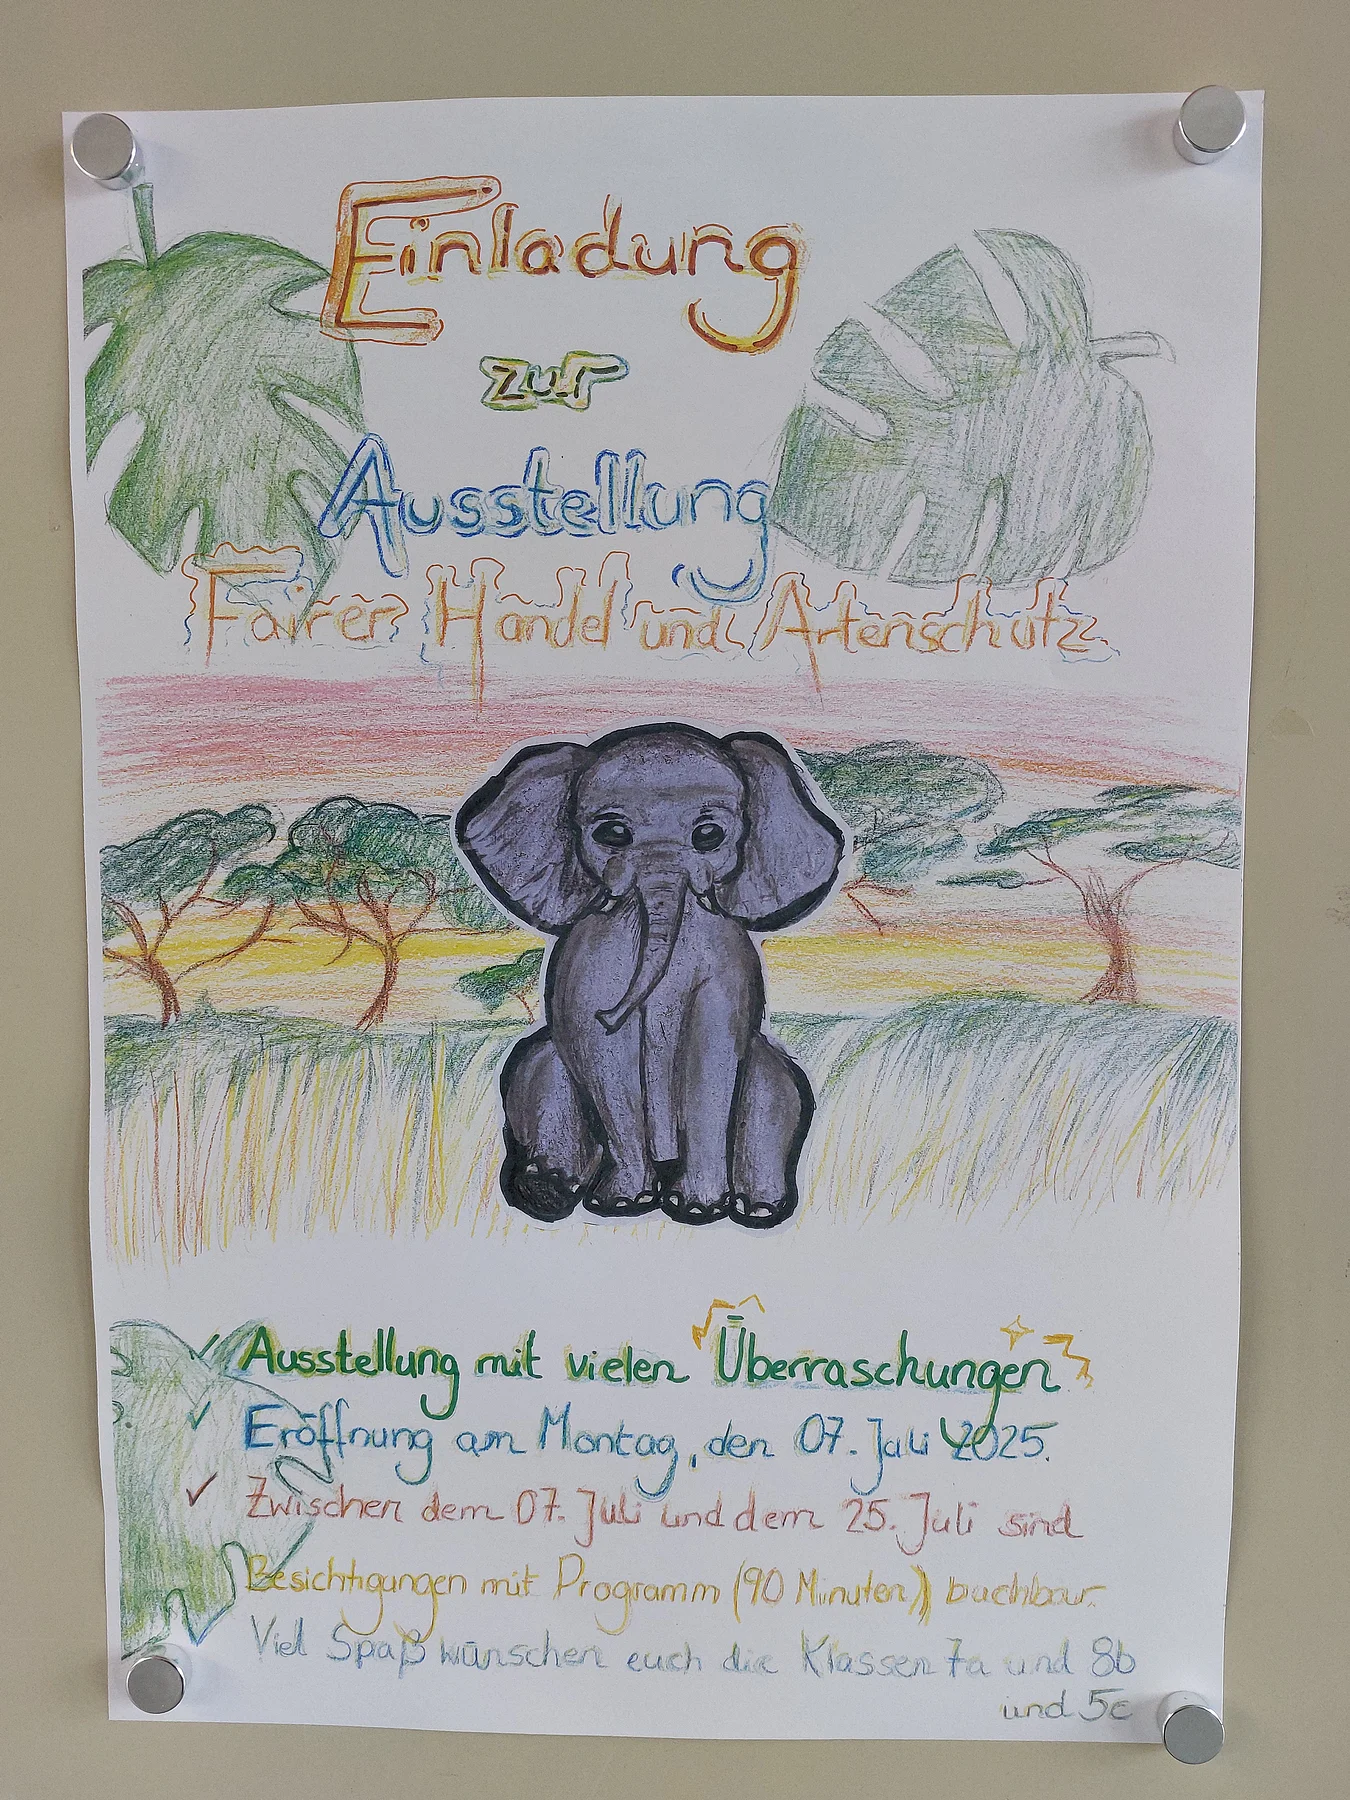 Einladung
zur
Ausstellung
Fairer Handel und Artenschutz
Ausstellung mit vielen Überraschungen
Eröffnung am Montag, den 07. Juli 2025.
Zwischen dem 07. Juli und dem 25. Juli sind
Besichtigungen mit Programm (90 Minuten) buchbar.
Viel Spaß wünschen euch die Klassen 7a und 8b
und 5c